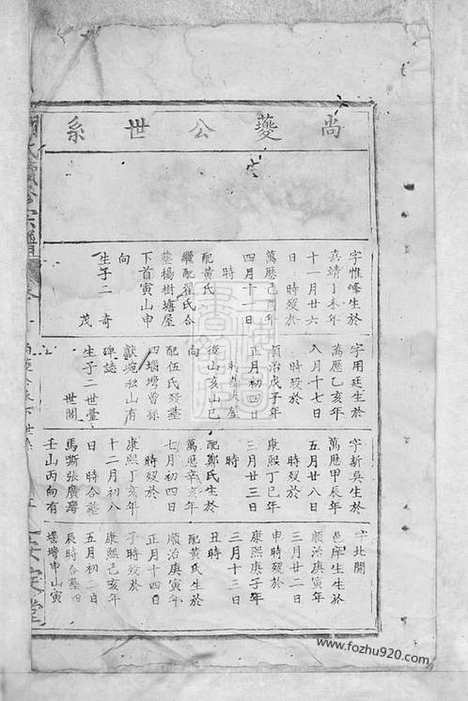 尚夔公世系
字惟峰生於
嘉靖丁未年
十一月廿六
日 時歿於
萬曆己酉年
四月十一日
時
配黃氏
繼配翟氏合
塟楊樹塘屋
下首寅山申
向
生子二 奇
茂
字用廷生於
萬曆乙亥年
八月十七日
時歿於
順治戊子年
正月初四日
後山亥山巳
配伍氏歿塟
四堰增
獻琬私山有
碑誌
生子二世臺
世閣
字新吳生於
萬曆甲辰年
五月廿八日
時歿於
康熙丁巳年
三月廿三日
時
配鄭氏生於
萬曆辛亥年
七月初四日
時歿於
康熙丁亥年
十二月初八
日 時合塟
馬嘶張廣灣
壬山丙向有
字北開
邑庠生生於
順治庚寅年
三月廿二日
申時歿於
康熙庚子年
三月十三日
丑時
配黃氏生於
順治庚寅年
正月十四日
子時歿於
康熙己亥年
五月初二日
辰時合塟四
堰增申山寅
www.fozhu920.com